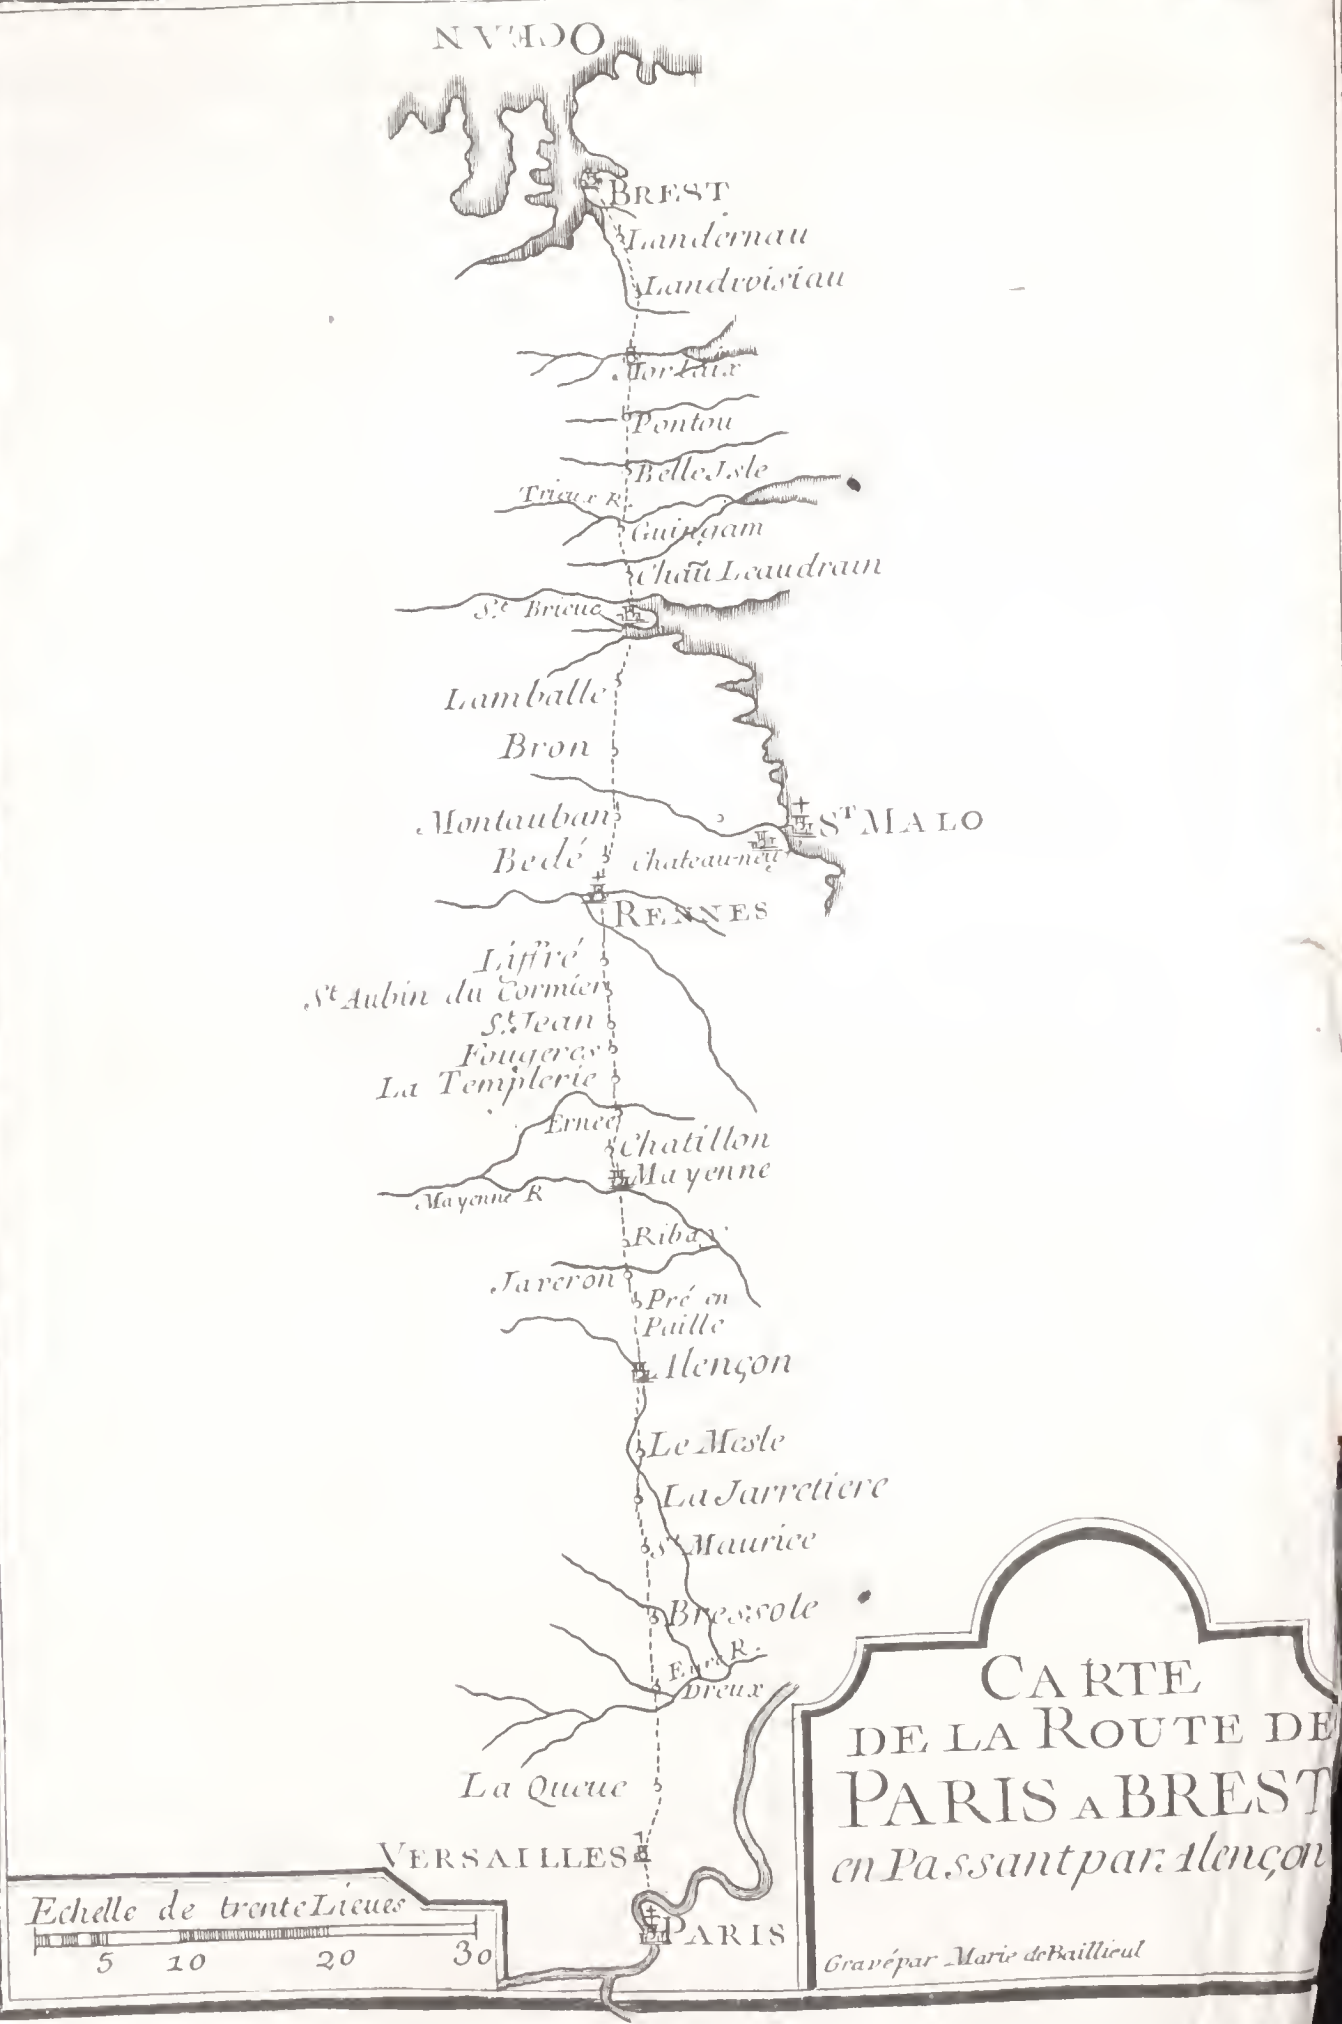 OCEAN
BREST
Landernau
Landivisiau
Morlaix
Pontou
Belle Isle
Trieux R.
Guingam
Chaũ Leaudrain
St. Brieuc
Lamballe
Bron
Montauban
ST MALO
Bedé
Chateauneuf
RENNES
Liffré
St Aubin du Cormier
St. Jean
Fougeres
La Templerie
Ernee
Chatillon
Mayenne
Mayenne R
Ribay
Javeron
Pré en
Paille
Alençon
Le Mesle
La Jarretiere
St Maurice
Bressole
Eure R.
Dreux
La Queue
VERSAILLES
PARIS
Echelle de trente Lieues
5 10 20 30
CARTE
DE LA ROUTE DE
PARIS A BREST
en Passant par Alençon
Gravé par Marie de Baillieul